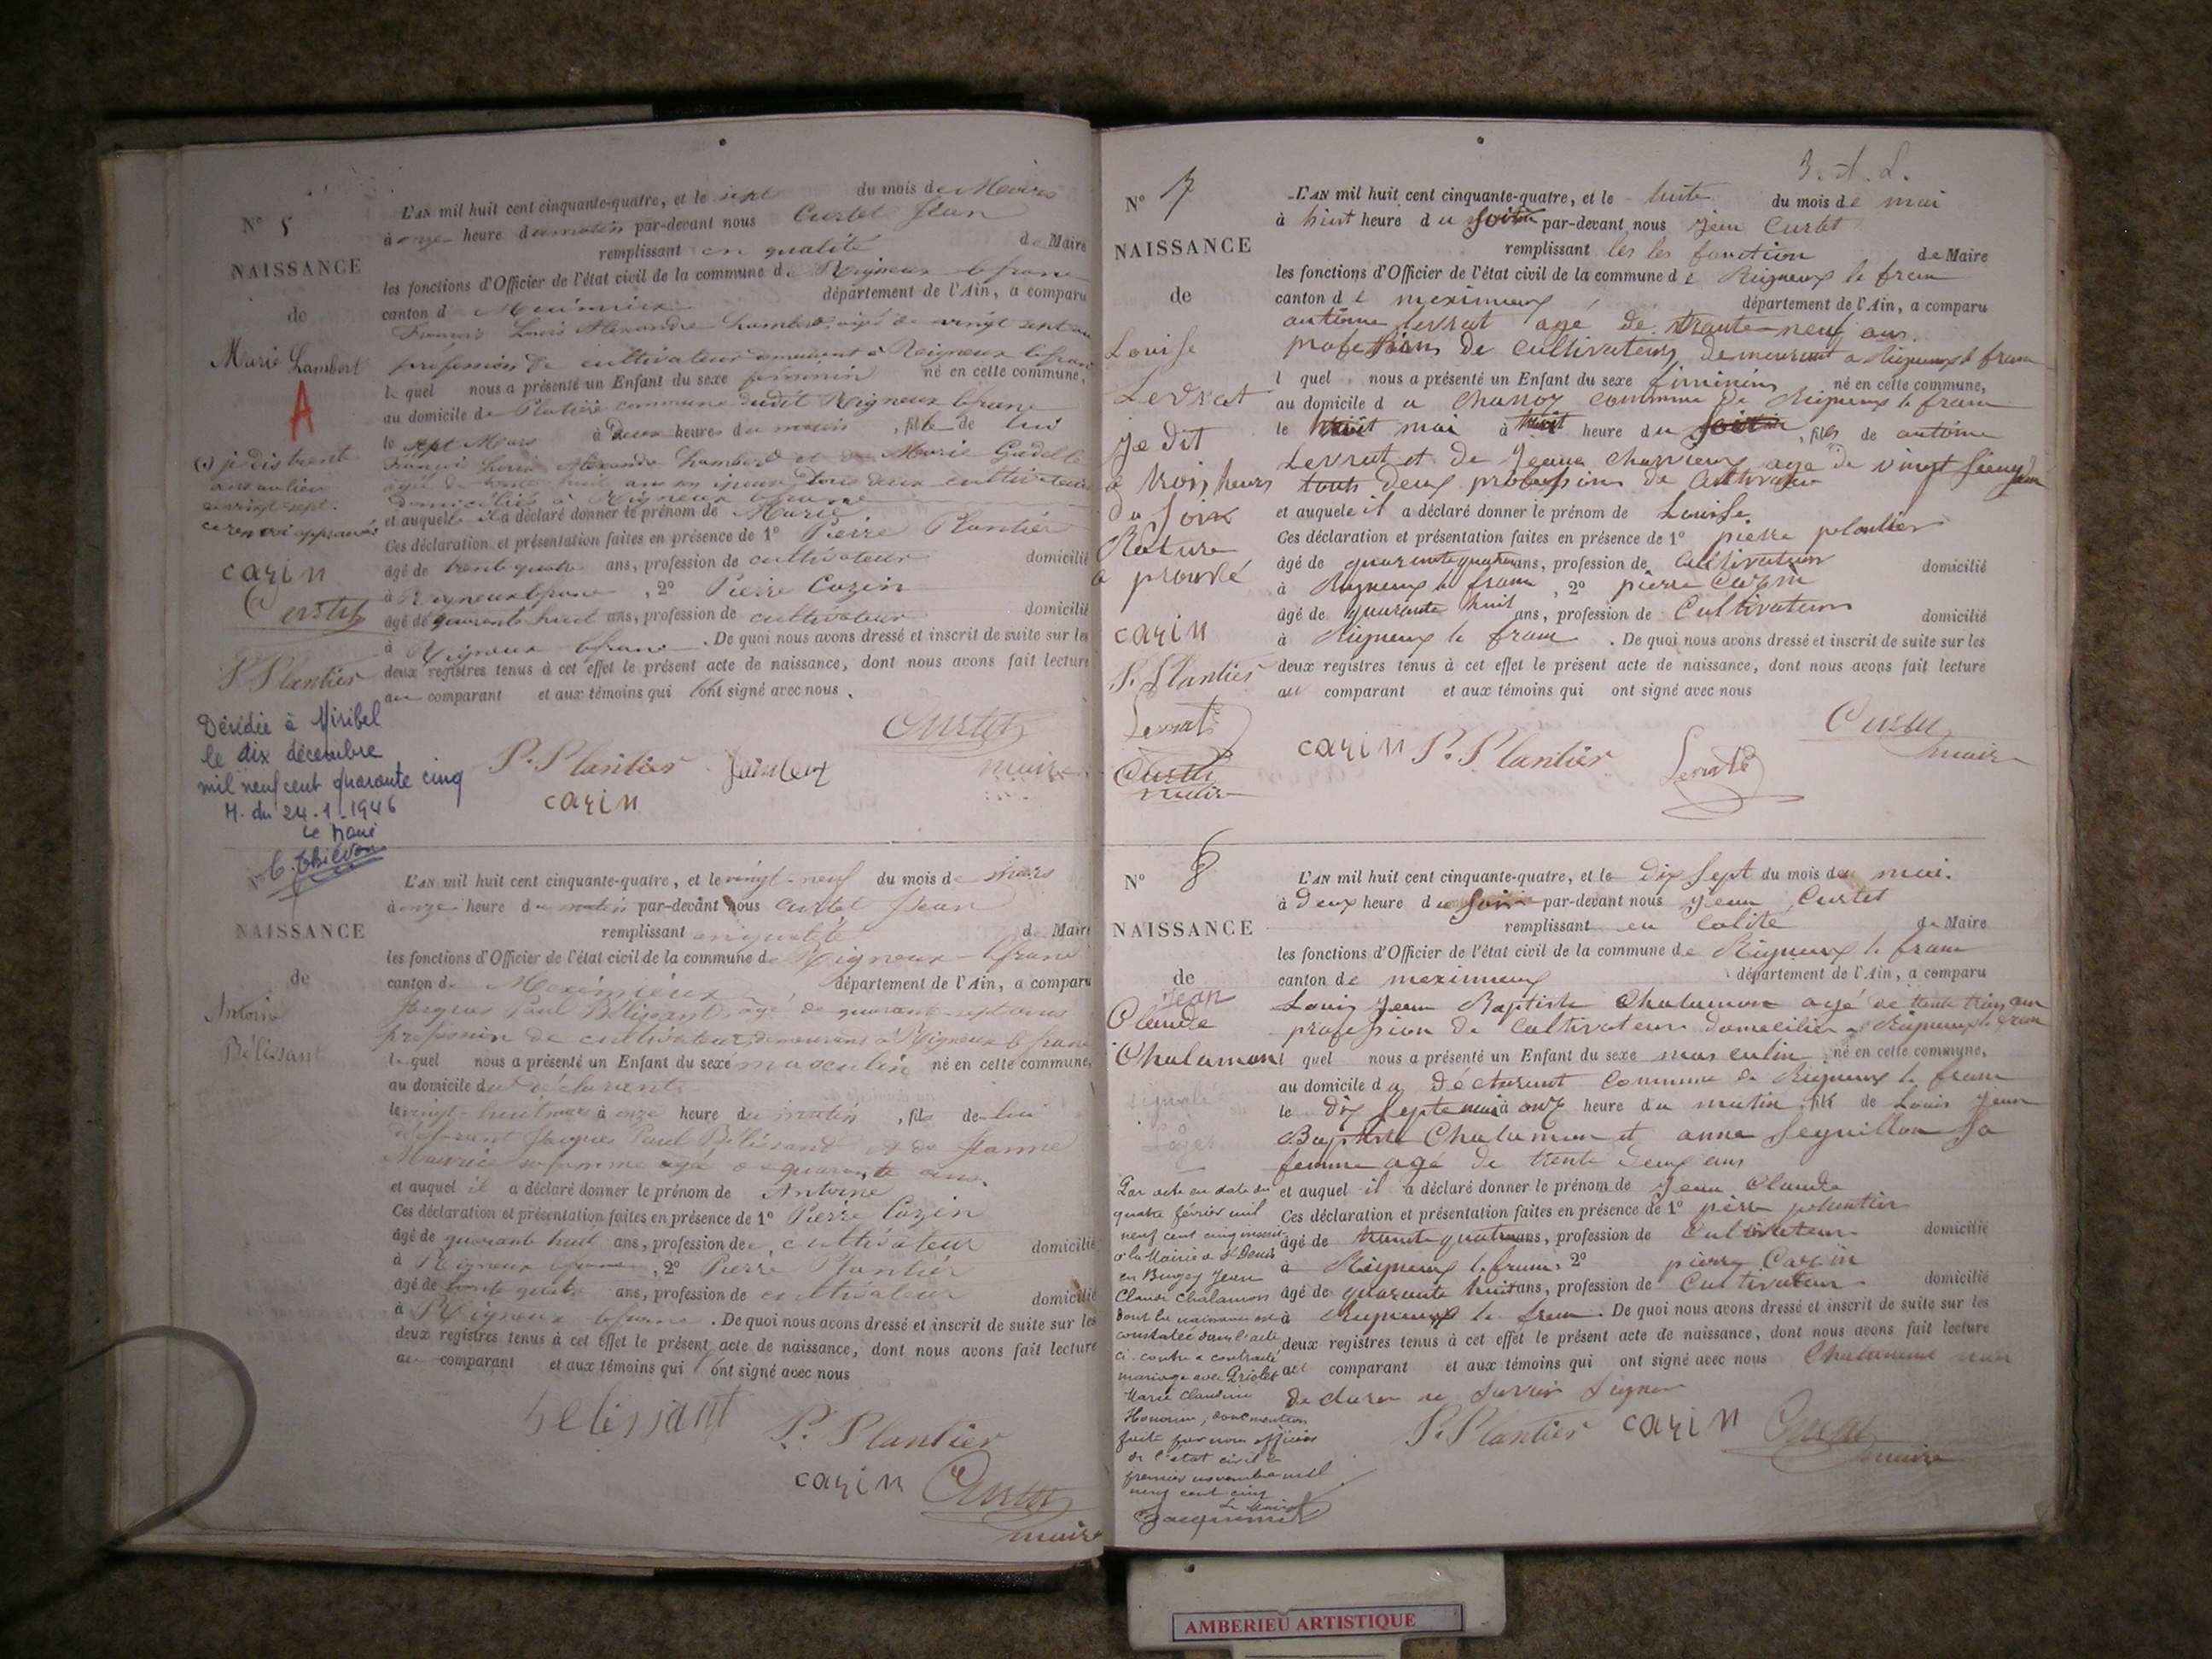 N° 5
NAISSANCE
de
Marie Lambert
A
je dis trente
ans au lieu
de vingt sept.
ce renvoi approuvé
cazin
Curtet
P. Plantier
Décédée à Miribel
le dix décembre
mil neuf cent quarante cinq
M. du 24.1.1946
Le Maire
L'AN mil huit cent cinquante-quatre, et le sept du mois de Mars
à onze heure du matin par-devant nous Curtet Jean
remplissant en qualité de Maire
les fonctions d'Officier de l'état civil de la commune de Rigneux le franc
canton de Meximieux département de l'Ain, a comparu
Francois Louis Alexandre Lambert, agé de vingt sept ans
profession de cultivateur demeurant à Rigneux le franc
lequel nous a présenté un Enfant du sexe féminin né en cette commune,
au domicile de Platière commune dudit Rigneux le franc
le sept Mars à Deux heures du matin, fille de lui
Francois Louis Alexandre Lambert et de Marie
domiciliés à Rigneux le franc
et auquel il a déclaré donner le prénom de Marie
Ces déclaration et présentation faites en présence de 1° Pierre Plantier
âgé de trente quatre ans, profession de cultivateur domicilié
à Rigneux le franc, 2° Pierre Cazin
âgé de quarante huit ans, profession de cultivateur domicilié
à Rigneux le franc. De quoi nous avons dressé et inscrit de suite sur les
deux registres tenus à cet effet le présent acte de naissance, dont nous avons fait lecture
au comparant et aux témoins qui ont signé avec nous.
Curtet
maire
P. Plantier
cazin
N°
NAISSANCE
de
Antoine
Bélissant
L'AN mil huit cent cinquante-quatre, et le vingt-neuf du mois de mars
à onze heure du matin par-devant nous Curtet Jean
remplissant en qualité de Maire
les fonctions d'Officier de l'état civil de la commune de Rigneux le franc
canton de Meximieux département de l'Ain, a comparu
Jacques Paul Bélissant, agé de quarante sept ans
profession de cultivateur, demeurant à Rigneux le franc
lequel nous a présenté un Enfant du sexe masculin né en cette commune,
au domicile du déclarant
le vingt-huit mars à onze heure du matin, fils de lui
déclarant Jacques Paul Bélissant et de Jeanne
Maurice sa femme agé de quarante ans.
et auquel il a déclaré donner le prénom de Antoine
Ces déclaration et présentation faites en présence de 1° Pierre Cazin
âgé de quarante huit ans, profession de cultivateur domicilié
à Rigneux le franc, 2° Pierre Plantier
âgé de trente quatre ans, profession de cultivateur domicilié
à Rigneux le franc. De quoi nous avons dressé et inscrit de suite sur les
deux registres tenus à cet effet le présent acte de naissance, dont nous avons fait lecture
au comparant et aux témoins qui ont signé avec nous
belissant
P. Plantier
cazin Curtet
maire
N° 7
NAISSANCE
de
Louise
Levrat
je dit
a trois heurs
du soir
Rature
a prouvé
cazin
P. Plantier
Levrat
Curtet
maire
L'AN mil huit cent cinquante-quatre, et le huite du mois de mai
à huit heure du par-devant nous jean Curtet
remplissant les les fonction de Maire
les fonctions d'Officier de l'état civil de la commune de Rigneux le fran
canton de meximieux département de l'Ain, a comparu
antoine levrat agé de trante-neuf ans
profession de cultivateur demeurant a Rigneux le fran
lequel nous a présenté un Enfant du sexe féminin né en cette commune,
au domicile d a commune de Rigneux le fran
le huit mai à huit heure du, filles de antoine
Levrat et de jeanne agé de vingt
touts deux profession de cultivateur
et auquele il a déclaré donner le prénom de Louise
Ces déclaration et présentation faites en présence de 1° pierre plantier
âgé de ans, profession de cultivateur domicilié
à Rigneux le fran, 2° pierre Cazin
âgé de quarante huit ans, profession de Cultivateur domicilié
à Rigneux le fran. De quoi nous avons dressé et inscrit de suite sur les
deux registres tenus à cet effet le présent acte de naissance, dont nous avons fait lecture
au comparant et aux témoins qui ont signé avec nous
Curtet
maire
cazin P. Plantier
Levrat
N° 8
NAISSANCE
de
Jean
Claude
Chalamon
Par acte en date du
quatre février mil
neuf cent cinq inscrit
à la Mairie de St Denis
en Bugey Jean
Claude Chalamon
dont la naissance est
constatée dans l'acte
ci-contre a contracté
mariage avec Priolet
Marie Claudine
Honorine, dont mention
faite par nous officier
de l'état civil le
premier novembre mil
neuf cent cinq
Le Maire
L'AN mil huit cent cinquante-quatre, et le dix sept du mois de mai.
à deux heure du soir par-devant nous jean Curtet
remplissant en calité de Maire
les fonctions d'Officier de l'état civil de la commune de Rigneux le fran
canton de meximieux département de l'Ain, a comparu
Louis jean Baptiste Chalamon agé de trente trois ans
profession de cultivateur domicilié a Rigneux le fran
lequel nous a présenté un Enfant du sexe masculin né en cette commune,
au domicile du déclarant commune de Rigneux le fran
le dix sept mai à onze heure du matin, fils de Louis jean
Baptiste Chalamon et anne seguillon sa
femme agé de trente deux ans
et auquel il a déclaré donner le prénom de jean Claude
Ces déclaration et présentation faites en présence de 1° pierre plantier
âgé de trante quatre ans, profession de cultivateur domicilié
à Rigneux le fran, 2° pierre Cazin
âgé de quarante huit ans, profession de cultivateur domicilié
à Rigneux le fran. De quoi nous avons dressé et inscrit de suite sur les
deux registres tenus à cet effet le présent acte de naissance, dont nous avons fait lecture
au comparant et aux témoins qui ont signé avec nous Chalamon
de clarer ne savoir signer
P. Plantier cazin Curtet
maire
AMBERIEU ARTISTIQUE